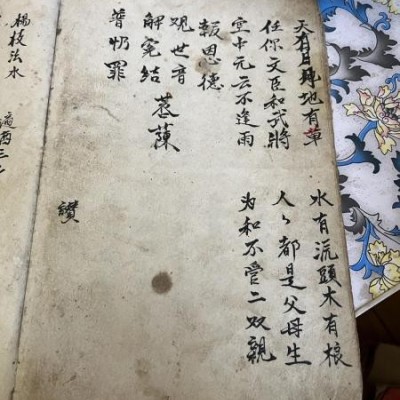 天有日地有草
水有流頭木有根
任你文臣和武將
人々都是父母生
空中元云不逢雨
为和不管二双親
報恩德
覌世音
解冤結
普忏罪
讚
楊枝法水